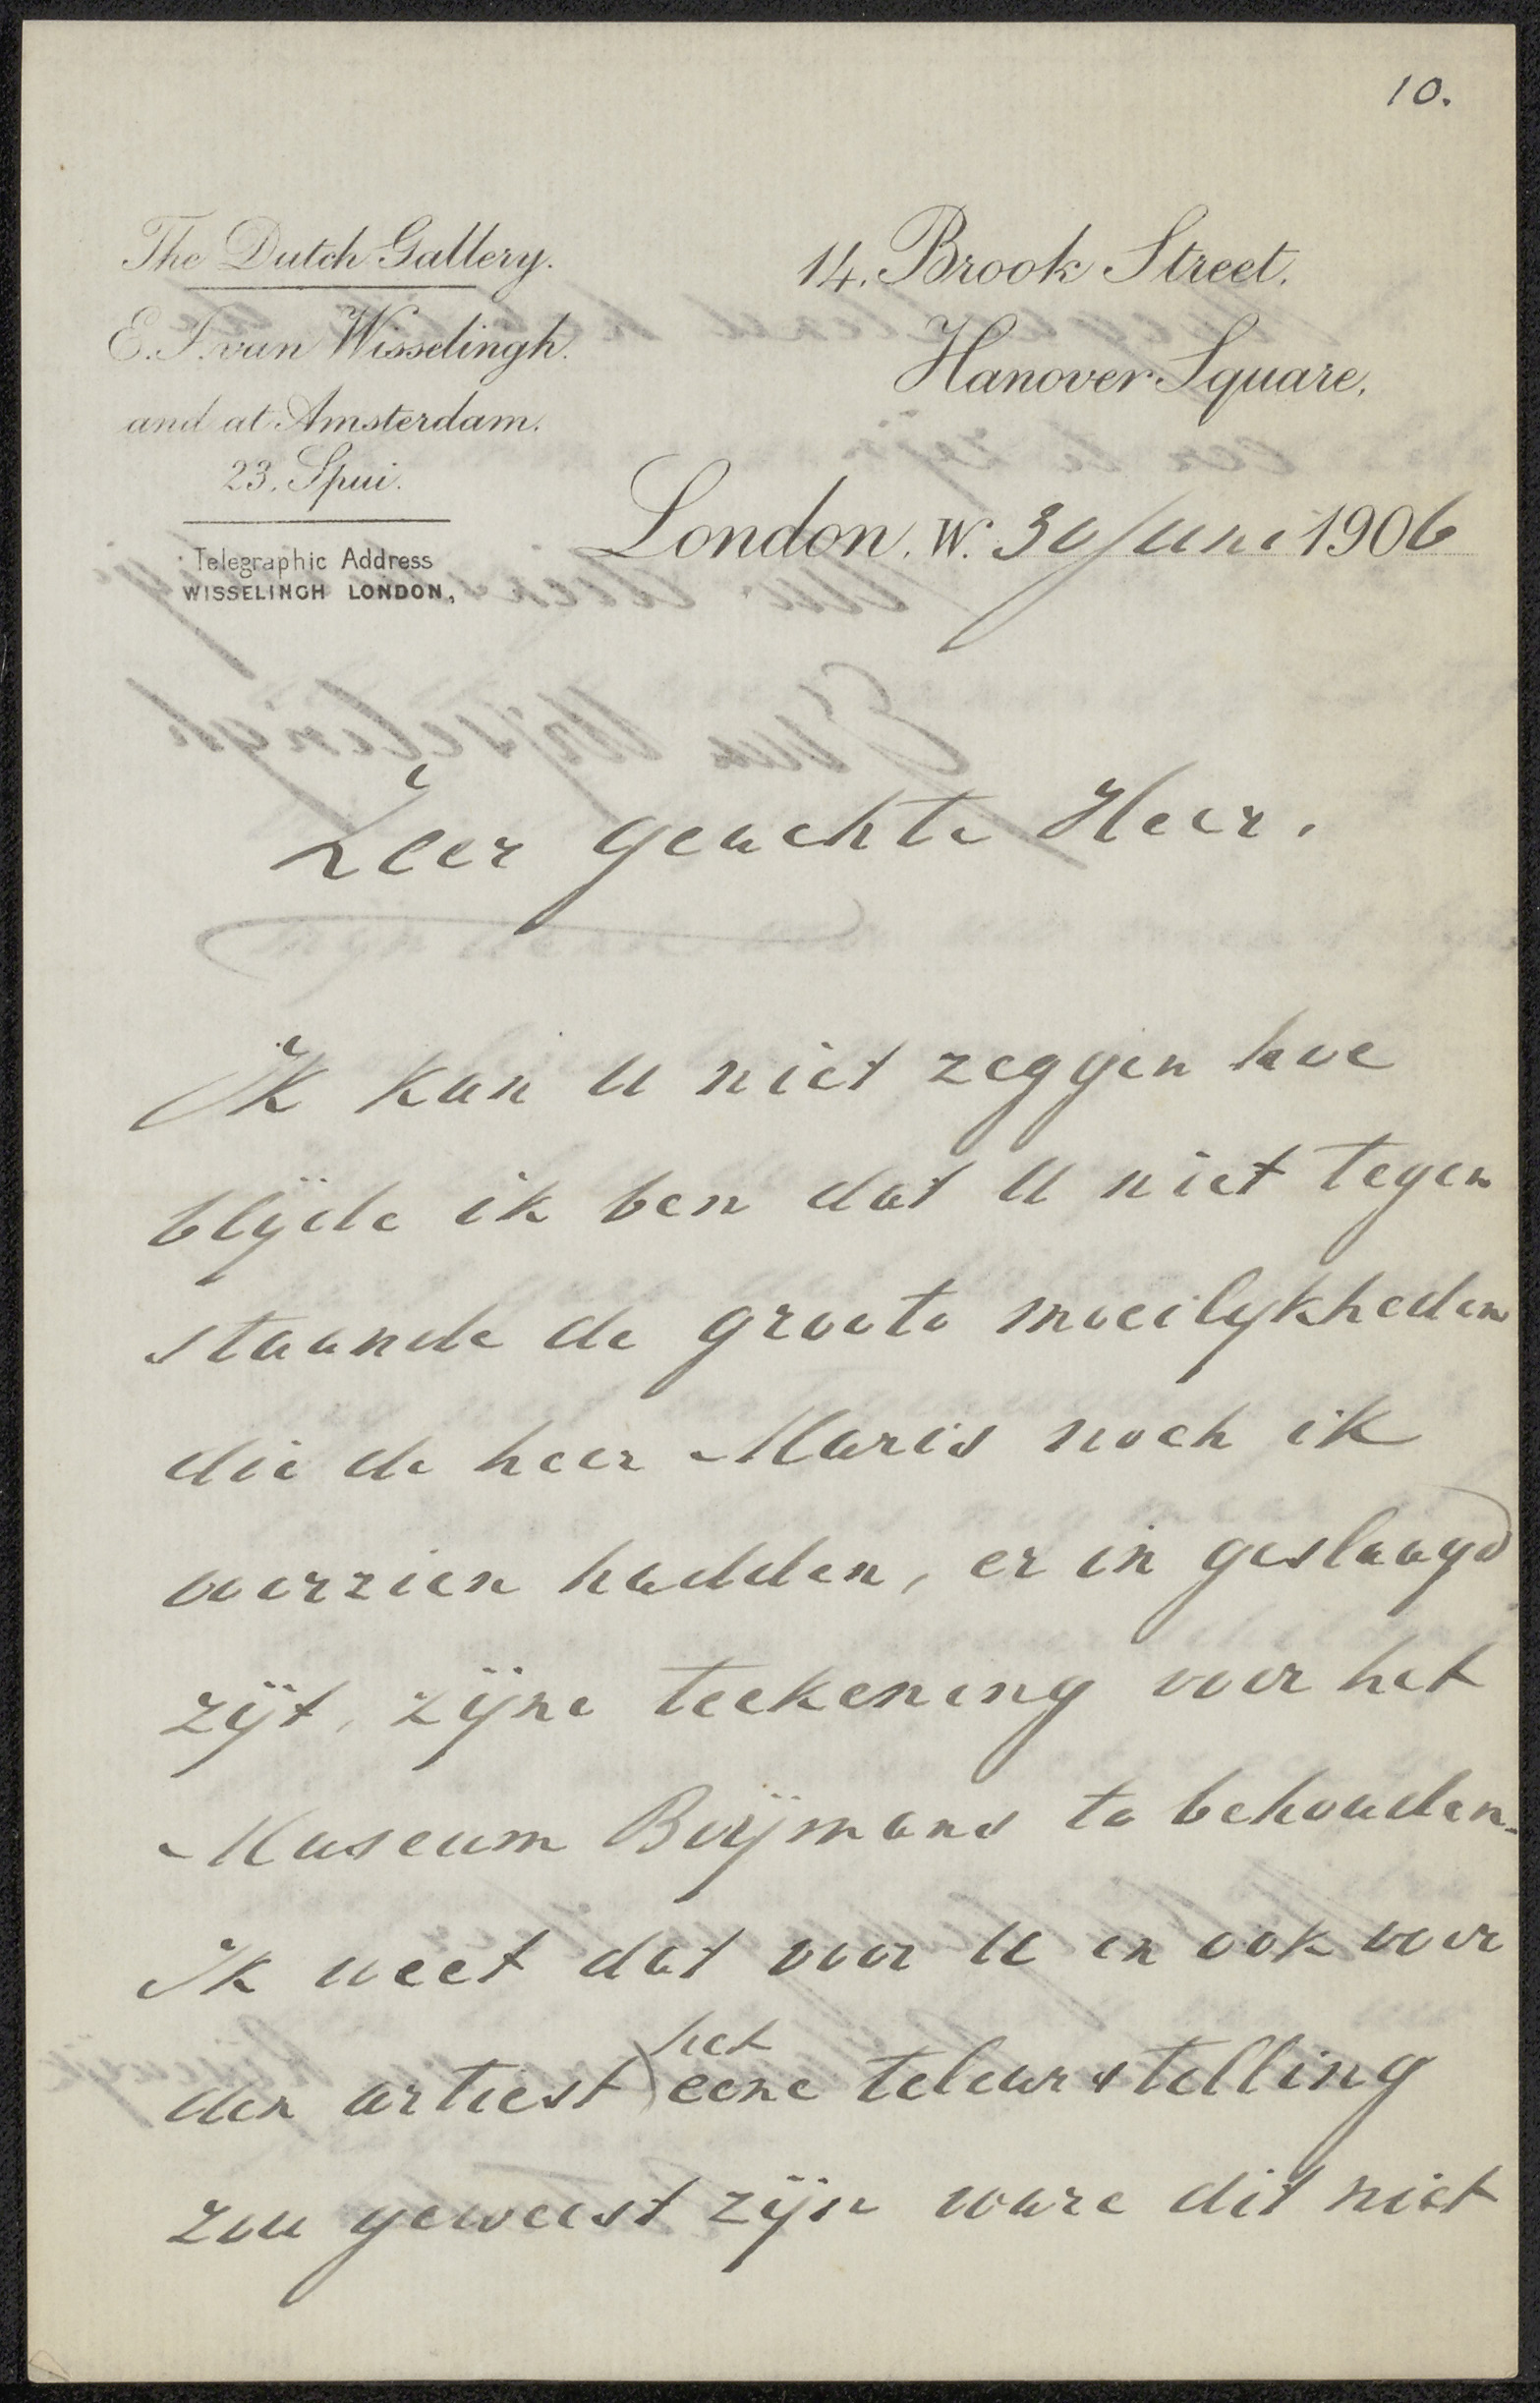 10.
The Dutch Gallery.
E. J. van Wisselingh.
and at Amsterdam.
23. Spui.
Telegraphic Address
WISSELINGH LONDON.
14. Brook Street.
Hanover Square,
London. W. 30 Juni 1906
Zeer geachte Heer.
Ik kan U niet zeggen hoe
blijde ik ben dat U niet tegen
staande de groote moeilijkheden
die de heer Maris noch ik
voorzien hadden, er in geslaagd
zijt, zijne teekening voor het
Museum Boijmans te behouden.
Ik weet dat voor U en ook voor
den artiest het eene teleurstelling
zou geweest zijn ware dit niet